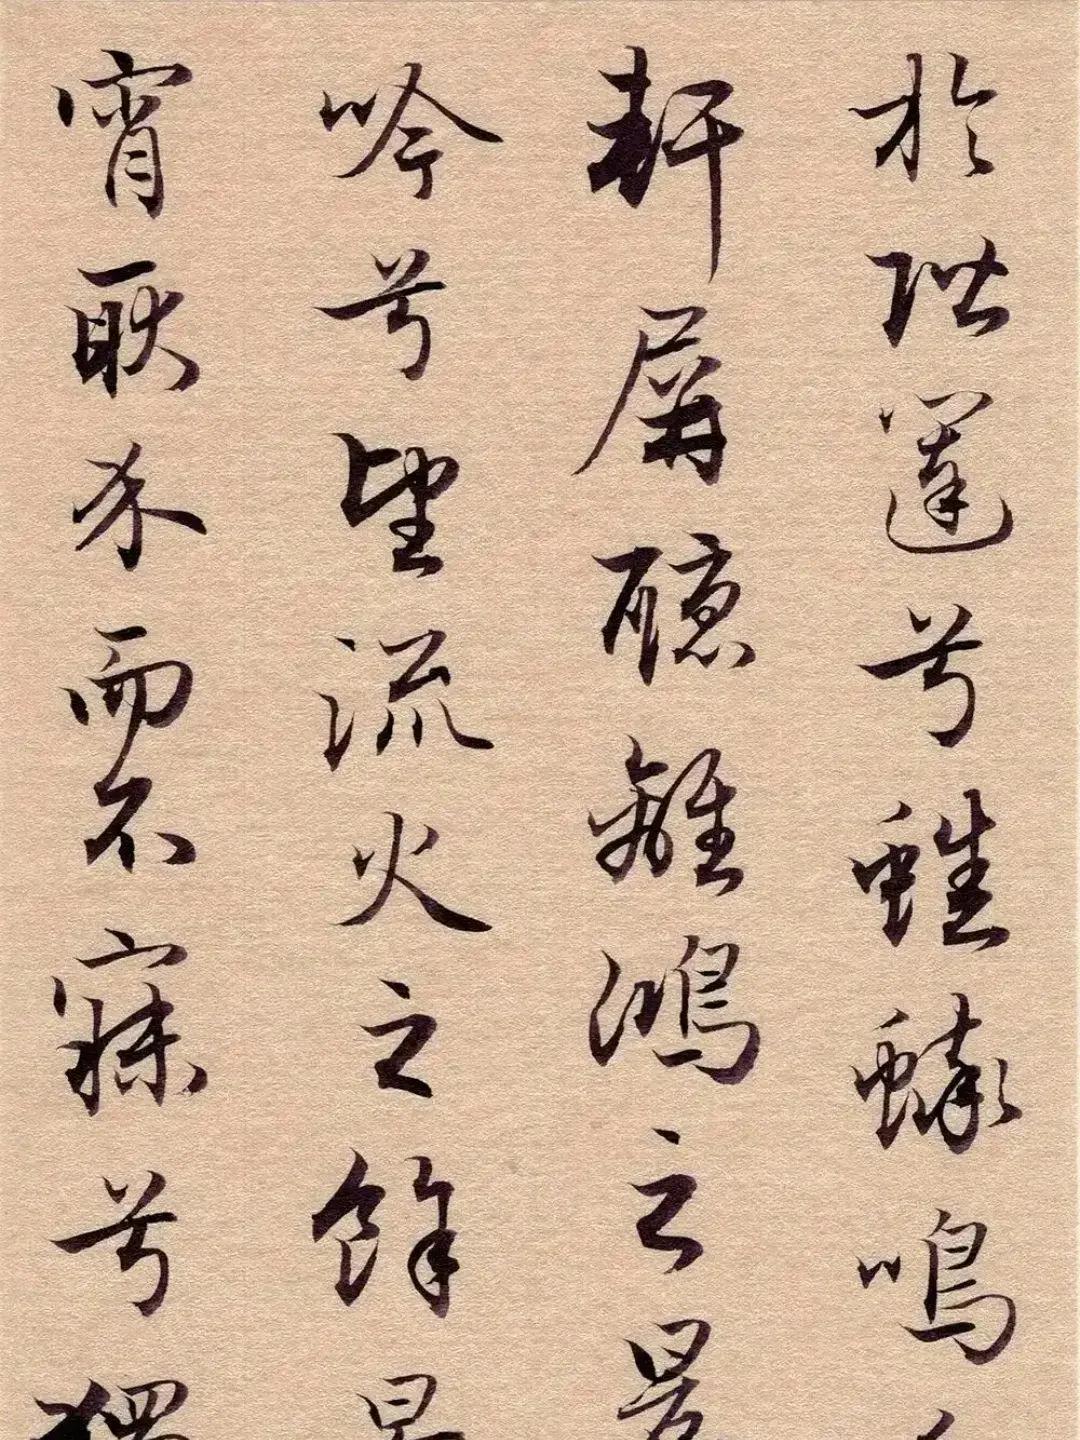 於階闥兮蟋蟀鳴
軒屏聽離鴻之晨
吟兮望流火之餘景
宵耿介而不寐兮獨